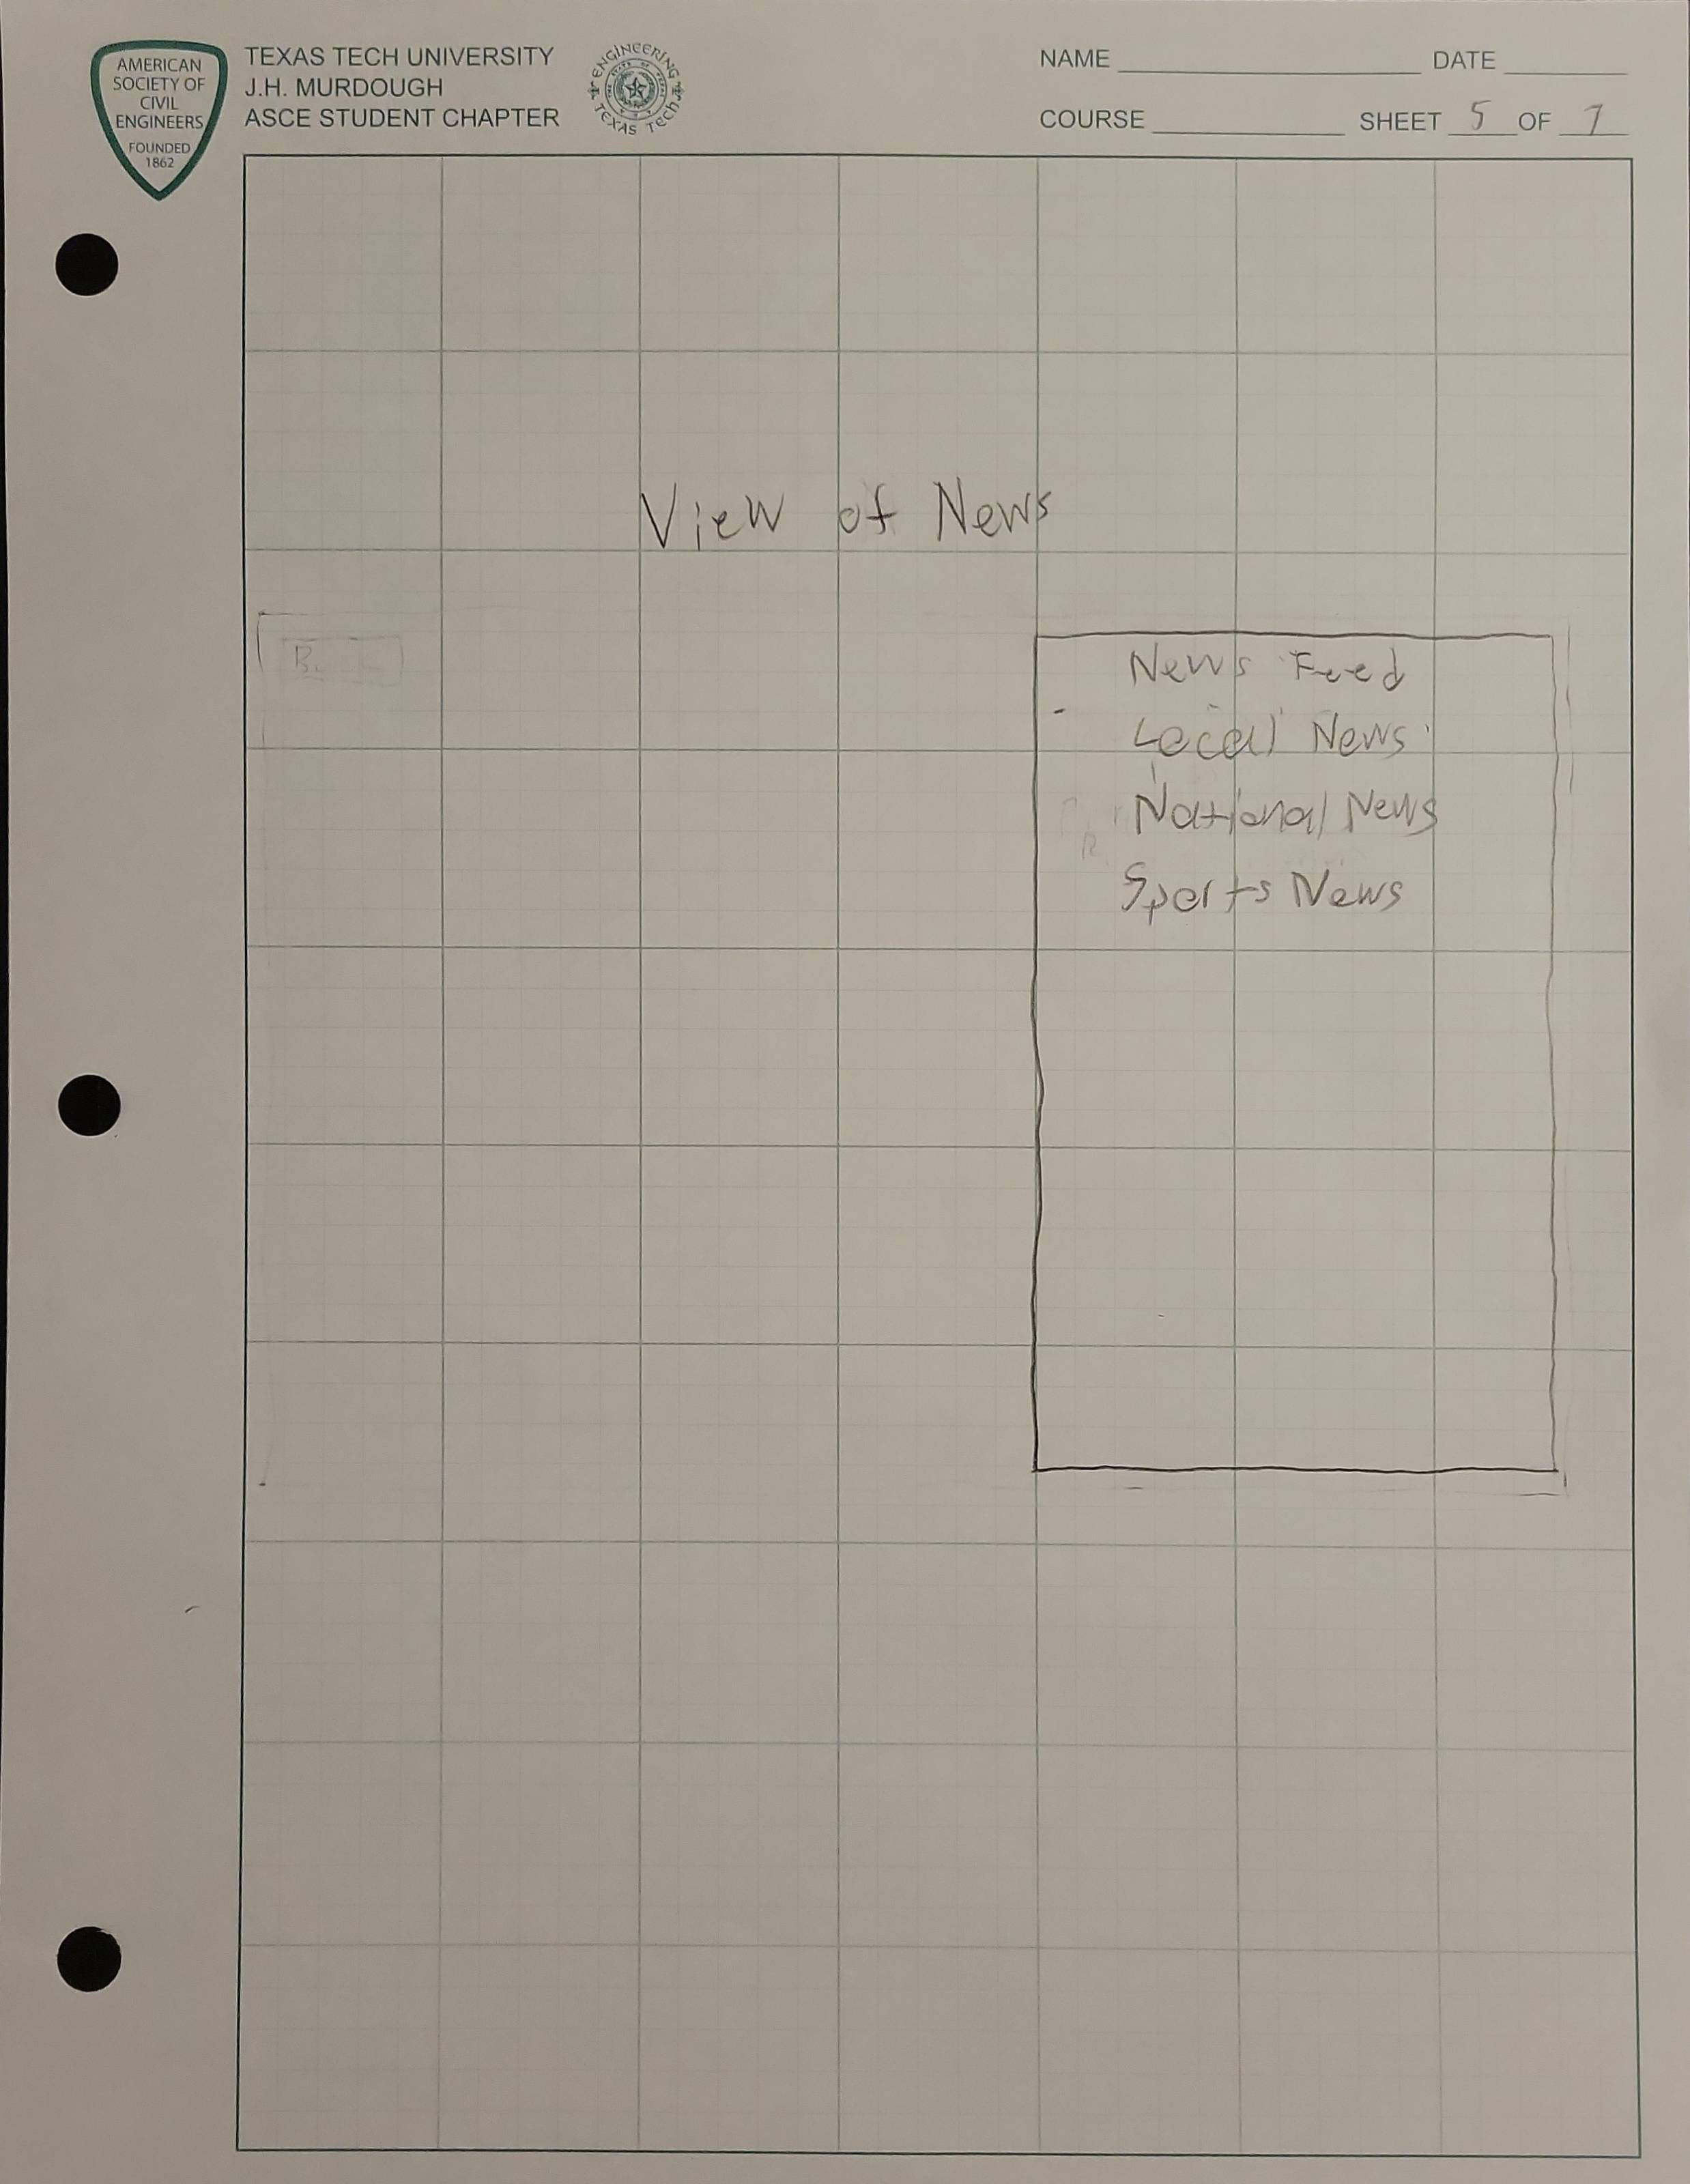 AMERICAN
SOCIETY OF
CIVIL
ENGINEERS
FOUNDED
1862
TEXAS TECH UNIVERSITY
J.H. MURDOUGH
ASCE STUDENT CHAPTER
ENGINEERING
TEXAS TECH
NAME DATE
COURSE SHEET 5 OF 7
View of News
News Feed
Local News
National News
Sports News